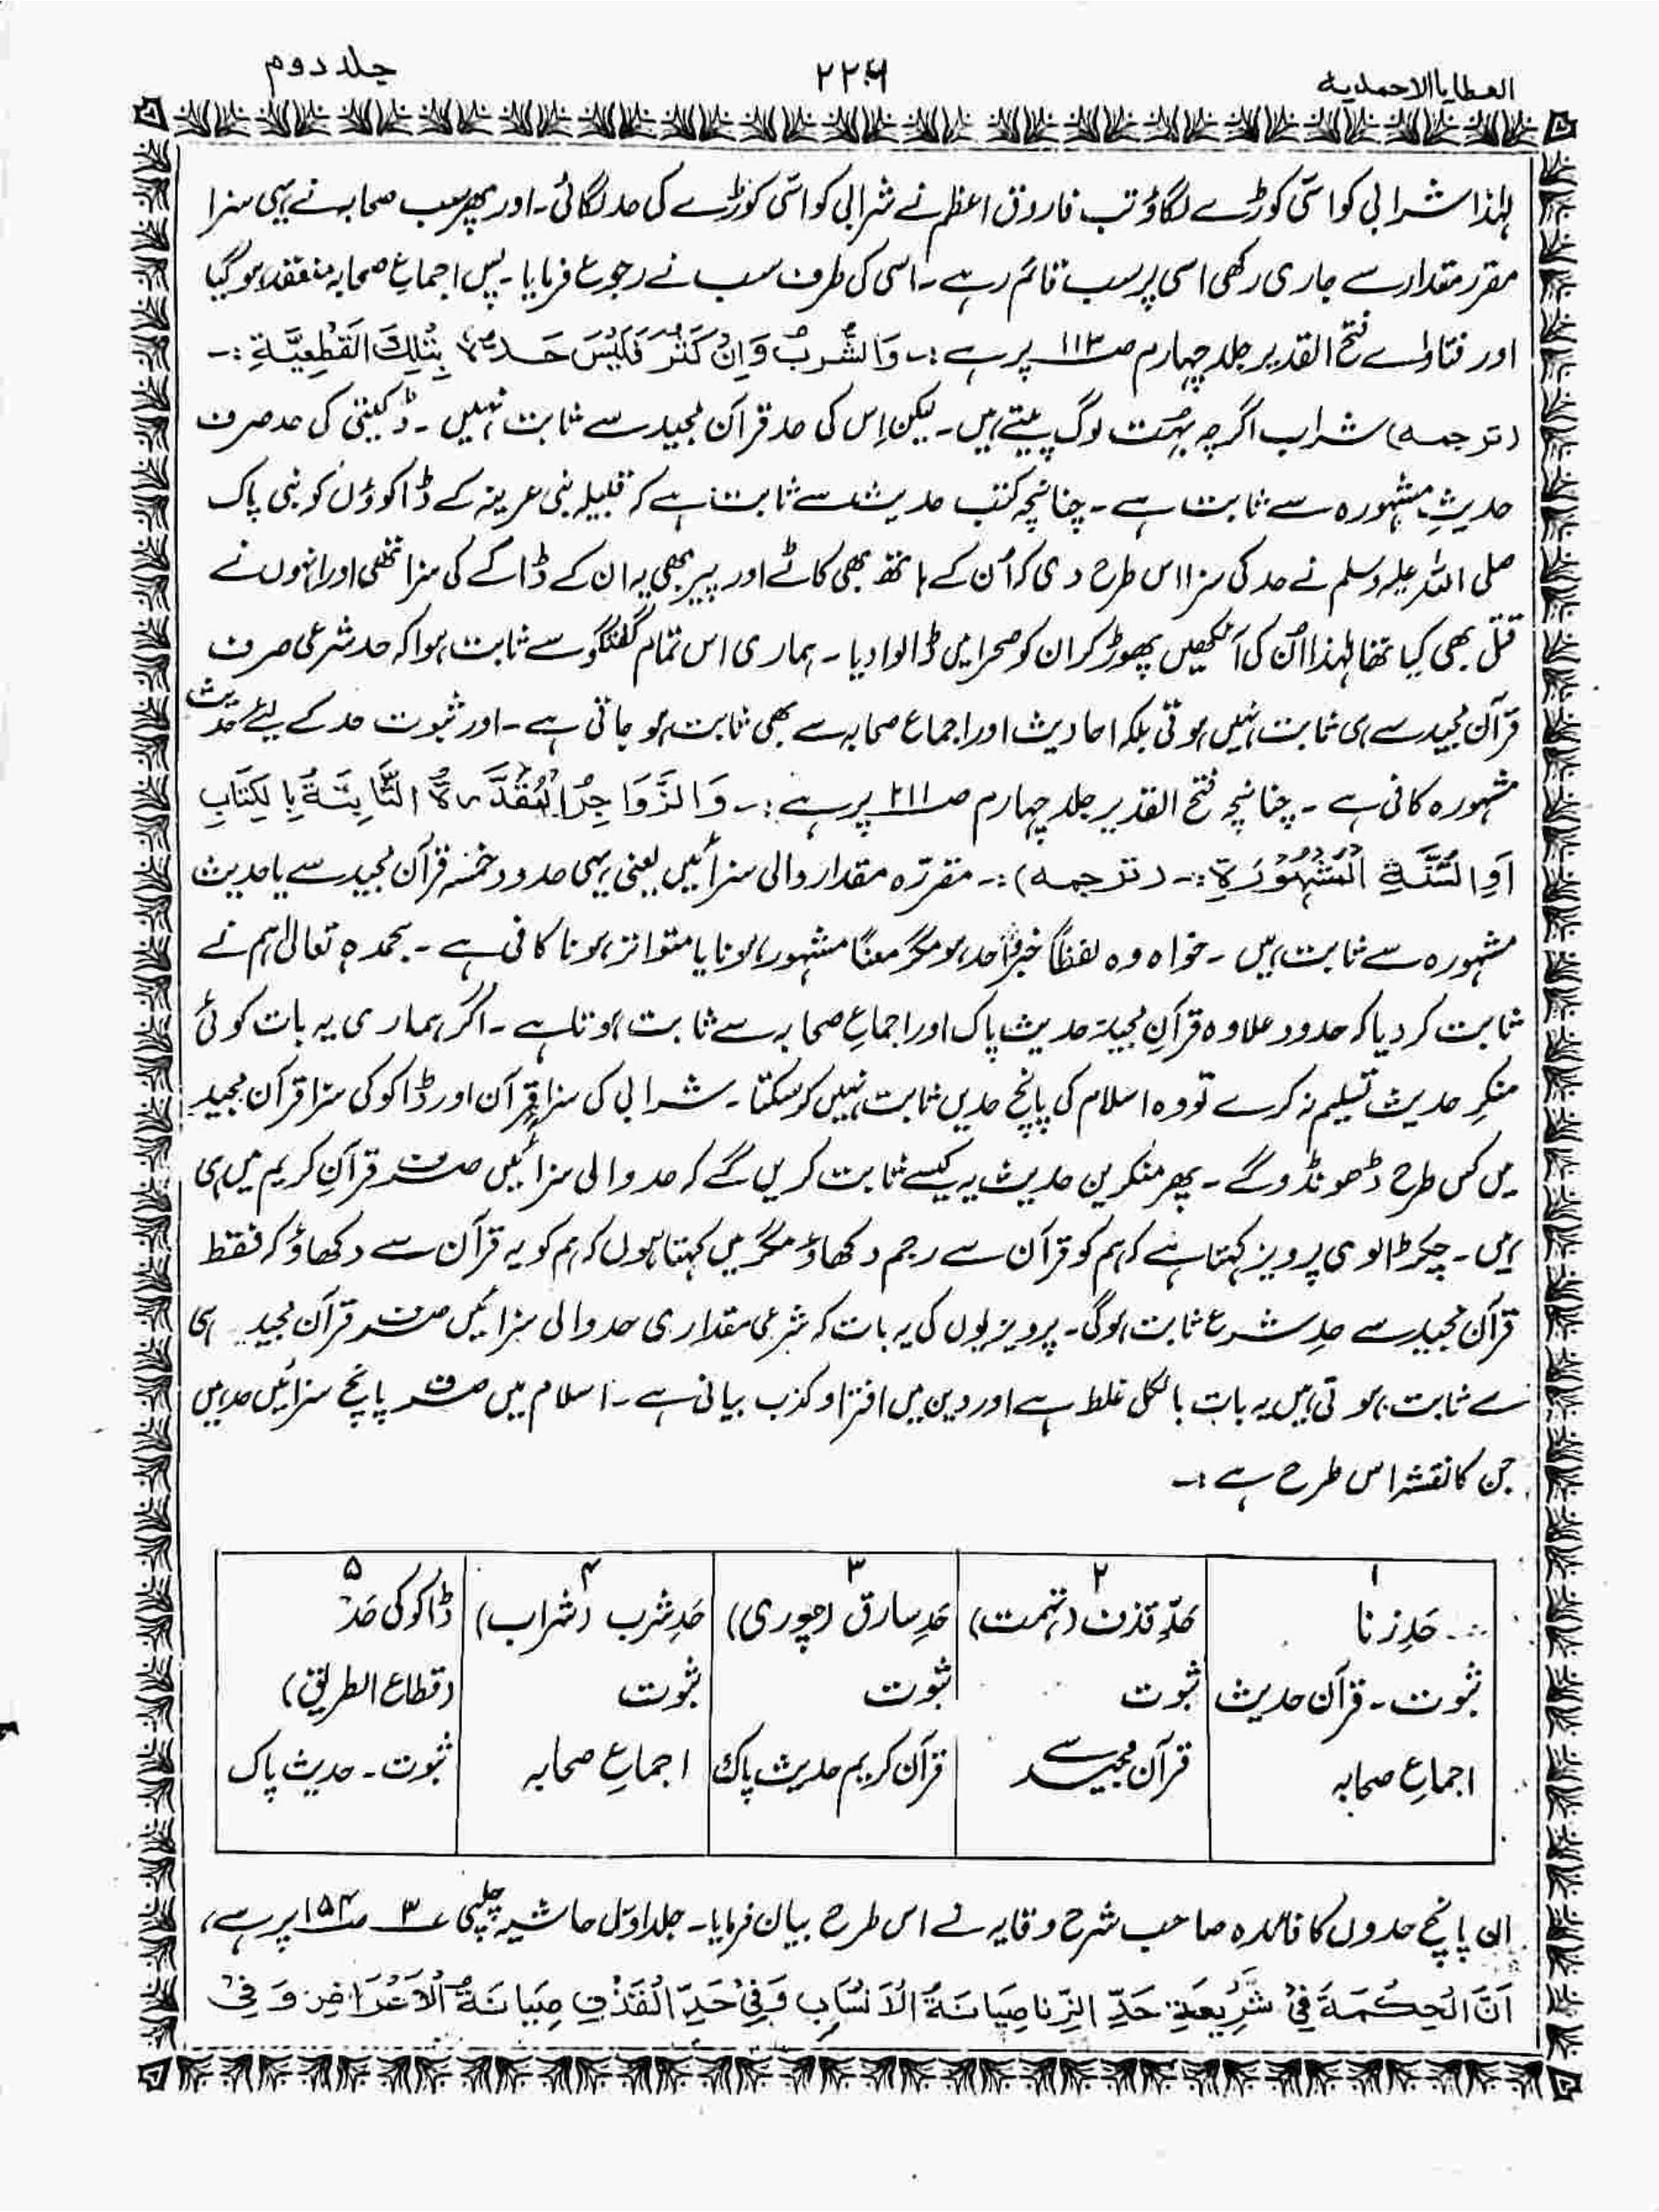 العطایا الاحمدیہ ۲۲۶ جلد دوم
لہٰذا شرابی کو اسّی کوڑے لگاؤ تب فاروق اعظم نے شرابی کو اسّی کوڑے کی حد لگائی۔ اور پھر سب صحابہ نے یہی سزا
مقرر مقدار سے جاری رکھی اسی پر سب قائم رہے۔ اسی کی طرف سب نے رجوع فرمایا۔ پس اجماعِ صحابہ منعقد ہوگیا
اور فتاواے فتح القدیر جلد چہارم صـ۱۱۳ پر ہے :۔ وَالشُّرْبُ وَاِنْ كَثُرَ فَلَيْسَ حَدُّهٗ بِتِلْكَ الْقَطْعِيَّةِ :۔
(ترجمہ) شراب اگرچہ بہت لوگ پیتے ہیں۔ لیکن اِس کی حد قرآن مجید سے ثابت نہیں۔ ڈکیتی کی حد صرف
حدیثِ مشہورہ سے ثابت ہے۔ چنانچہ کتب حدیث سے ثابت ہے کہ قبیلہ بنی عرینہ کے ڈاکوؤں کو نبی پاک
صلی اللہ علیہ وسلم نے حد کی سزا اس طرح دی کہ اُن کے ہاتھ بھی کاٹے اور پیر بھی یہ ان کے ڈاکے کی سزا تھی اور انہوں نے
قتل بھی کیا تھا لہٰذا اُن کی آنکھیں پھوڑ کر ان کو صحرا میں ڈالوا دیا۔ ہماری اس تمام گفتگو سے ثابت ہوا کہ حد شرعی صرف
قرآن مجید سے ہی ثابت نہیں ہوتی بلکہ احادیث اور اجماع صحابہ سے بھی ثابت ہو جاتی ہے۔ اور ثبوت حد کے لیے حدیث
مشہورہ کافی ہے۔ چنانچہ فتح القدیر جلد چہارم صـ۲۱۱ پر ہے :۔ وَالزَّوَاجِرُ الْمُقَدَّرَةُ الثَّابِتَةُ بِالْكِتَابِ
اَوِ السُّنَّةِ الْمَشْهُوْرَةِ :۔ (ترجمہ) :۔ مقررّہ مقدار والی سزائیں یعنی یہی حدود خمسہ قرآن مجید سے یا حدیث
مشہورہ سے ثابت ہیں۔ خواہ وہ لفظاً خبرِ واحد ہو مگر معناً مشہور ہونا یا متواتر ہونا کافی ہے۔ بحمدہٖ تعالیٰ ہم نے
ثابت کر دیا کہ حدود علاوہ قرآنِ مجید حدیث پاک اور اجماعِ صحابہ سے ثابت ہوتا ہے۔ اگر ہماری یہ بات کوئی
منکرِ حدیث تسلیم نہ کرے تو وہ اسلام کی پانچ حدیں ثابت نہیں کر سکتا۔ شرابی کی سزا قرآن اور ڈاکو کی سزا قرآن مجید
میں کس طرح ڈھونڈو گے۔ پھر منکرین حدیث یہ کیسے ثابت کریں گے کہ حد والی سزائیں صرف قرآنِ کریم میں ہی
ہیں۔ چکڑالوی پرویز کہتا ہے کہ ہم کو قرآن سے رجم دکھاؤ مگر میں کہتا ہوں کہ ہم کو یہ قرآن سے دکھاؤ کہ فقط
قرآن مجید سے حدِ شرع ثابت ہوگی۔ پرویزیوں کی یہ بات کہ شرعی مقداری حد والی سزائیں صرف قرآن مجید ہی
سے ثابت ہوتی ہیں یہ بات بالکل غلط ہے اور دین میں افترا و کذب بیانی ہے۔ اسلام میں صرف پانچ سزائیں حد ہیں
جن کا نقشہ اس طرح ہے :۔
۱ ۲ ۳ ۴ ۵
حَدِ زنا حَدِّ قذف (تہمت) حَدِ سارق (چوری) حَدِ شرب (شراب) ڈاکو کی حَد
ثبوت۔ قرآن حدیث ثبوت ثبوت ثبوت (قطاع الطریق)
اجماعِ صحابہ قرآن مجید سے قرآن کریم حدیث پاک اجماعِ صحابہ ثبوت۔ حدیث پاک
ان پانچ حدوں کا فائدہ صاحب شرح وقایہ نے اس طرح بیان فرمایا۔ جلد اوّل حاشیہ چلپی ؏۳ صـ۱۵۴ پر ہے،
اَنَّ الْحِكْمَةَ فِيْ شَرِيْعَةِ حَدِّ الزِّنَا صِيَانَةُ الْاَنْسَابِ وَفِيْ حَدِّ الْقَذْفِ صِيَانَةُ الْاَعْرَاضِ وَفِيْ